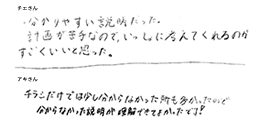 チエさん
分かりやすい説明だった。
計画が苦手なので、いっしょに考えてくれるのが
すごくいいと思った。
アキさん
チラシだけでは少し分からなかった所も多かったので
分からなかった説明が理解できてよかったです!